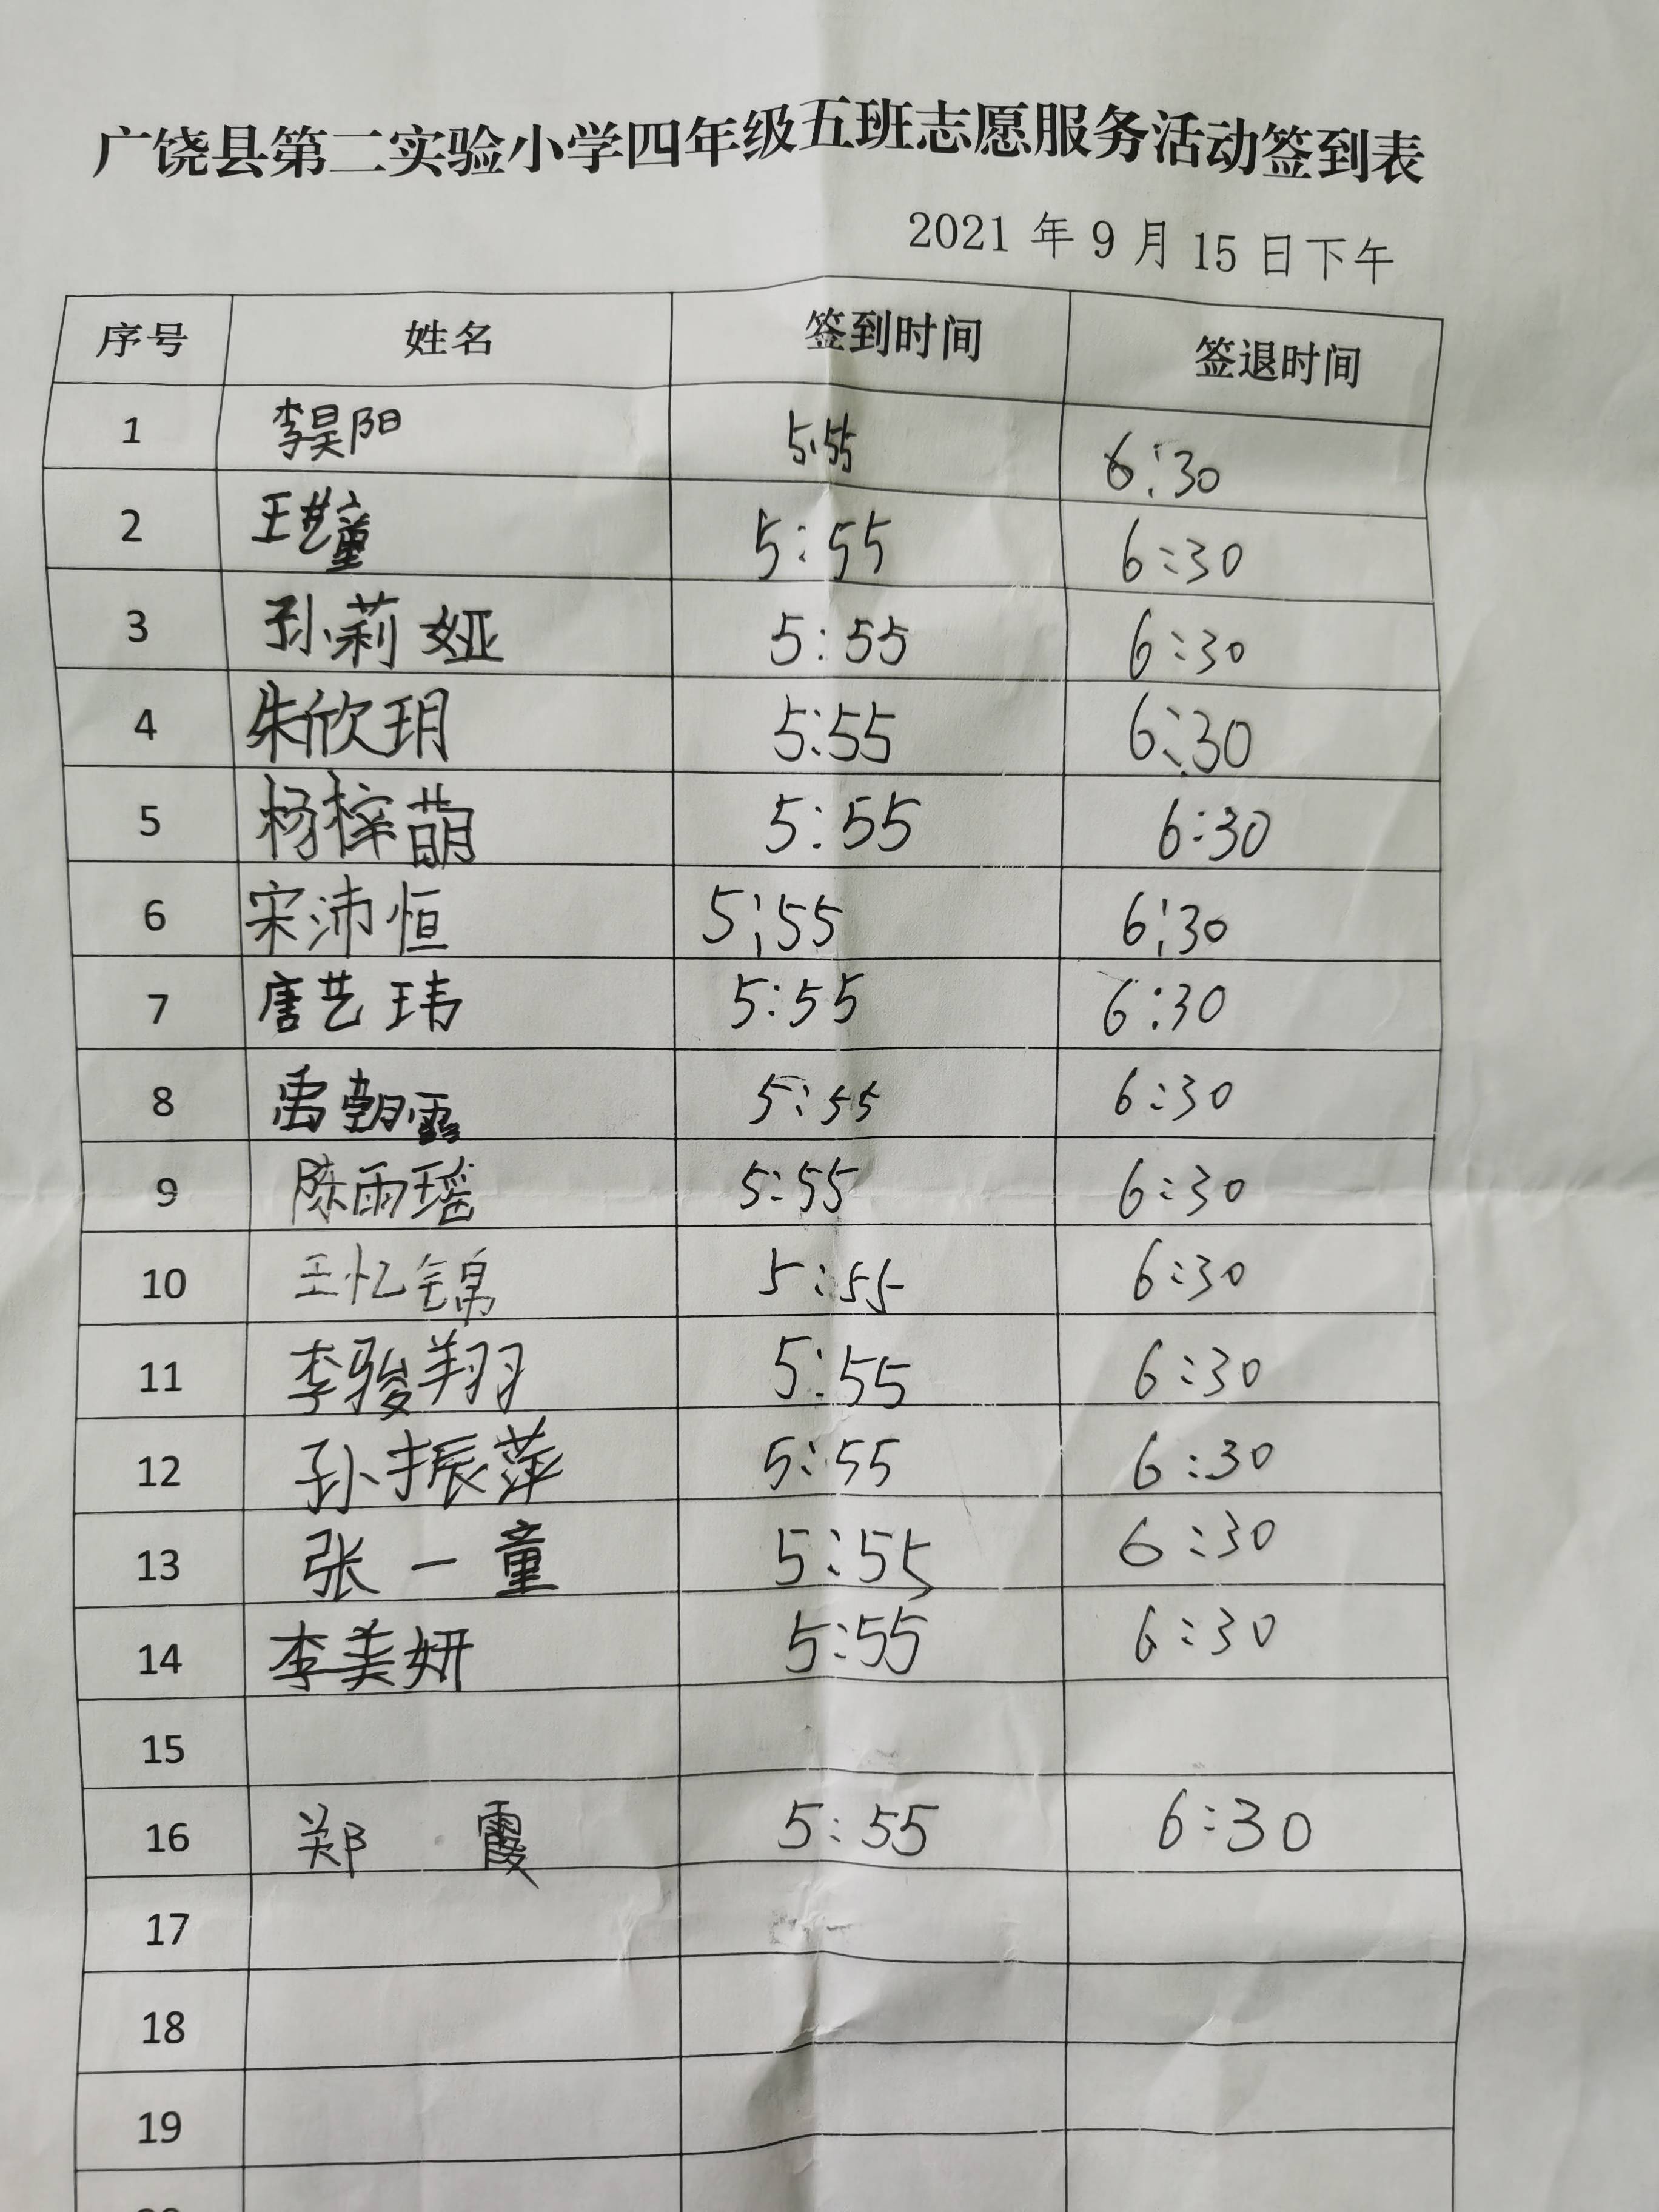 广饶县第二实验小学四年级五班志愿服务活动签到表
2021 年 9 月 15 日下午
序号 姓名 签到时间 签退时间
1 李昊阳 5:55 6:30
2 王艺童 5:55 6:30
3 孙莉娅 5:55 6:30
4 朱欣玥 5:55 6:30
5 杨梓萌 5:55 6:30
6 宋沛恒 5:55 6:30
7 唐艺玮 5:55 6:30
8 禹朝露 5:55 6:30
9 陈雨瑶 5:55 6:30
10 王忆锦 5:55 6:30
11 李骏翔 5:55 6:30
12 孙振萍 5:55 6:30
13 张一童 5:55 6:30
14 李美妍 5:55 6:30
15
16 郑 霞 5:55 6:30
17
18
19